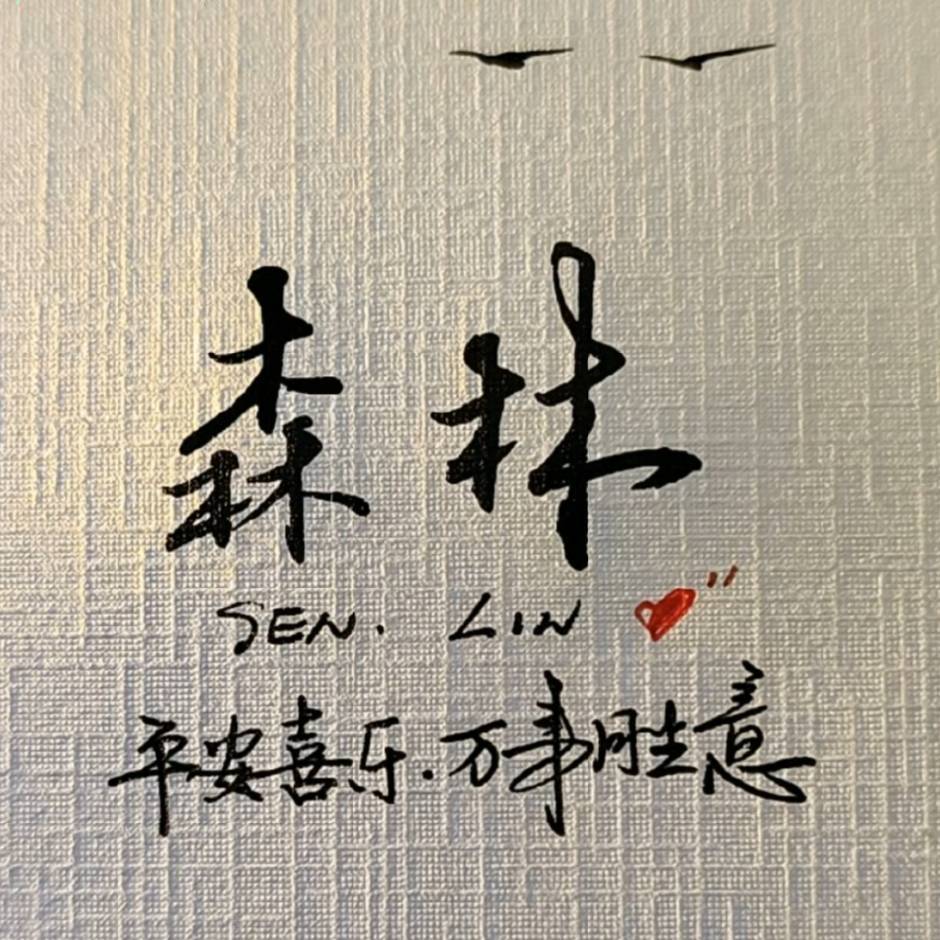 森林
SEN. LIN
平安喜乐.万事胜意